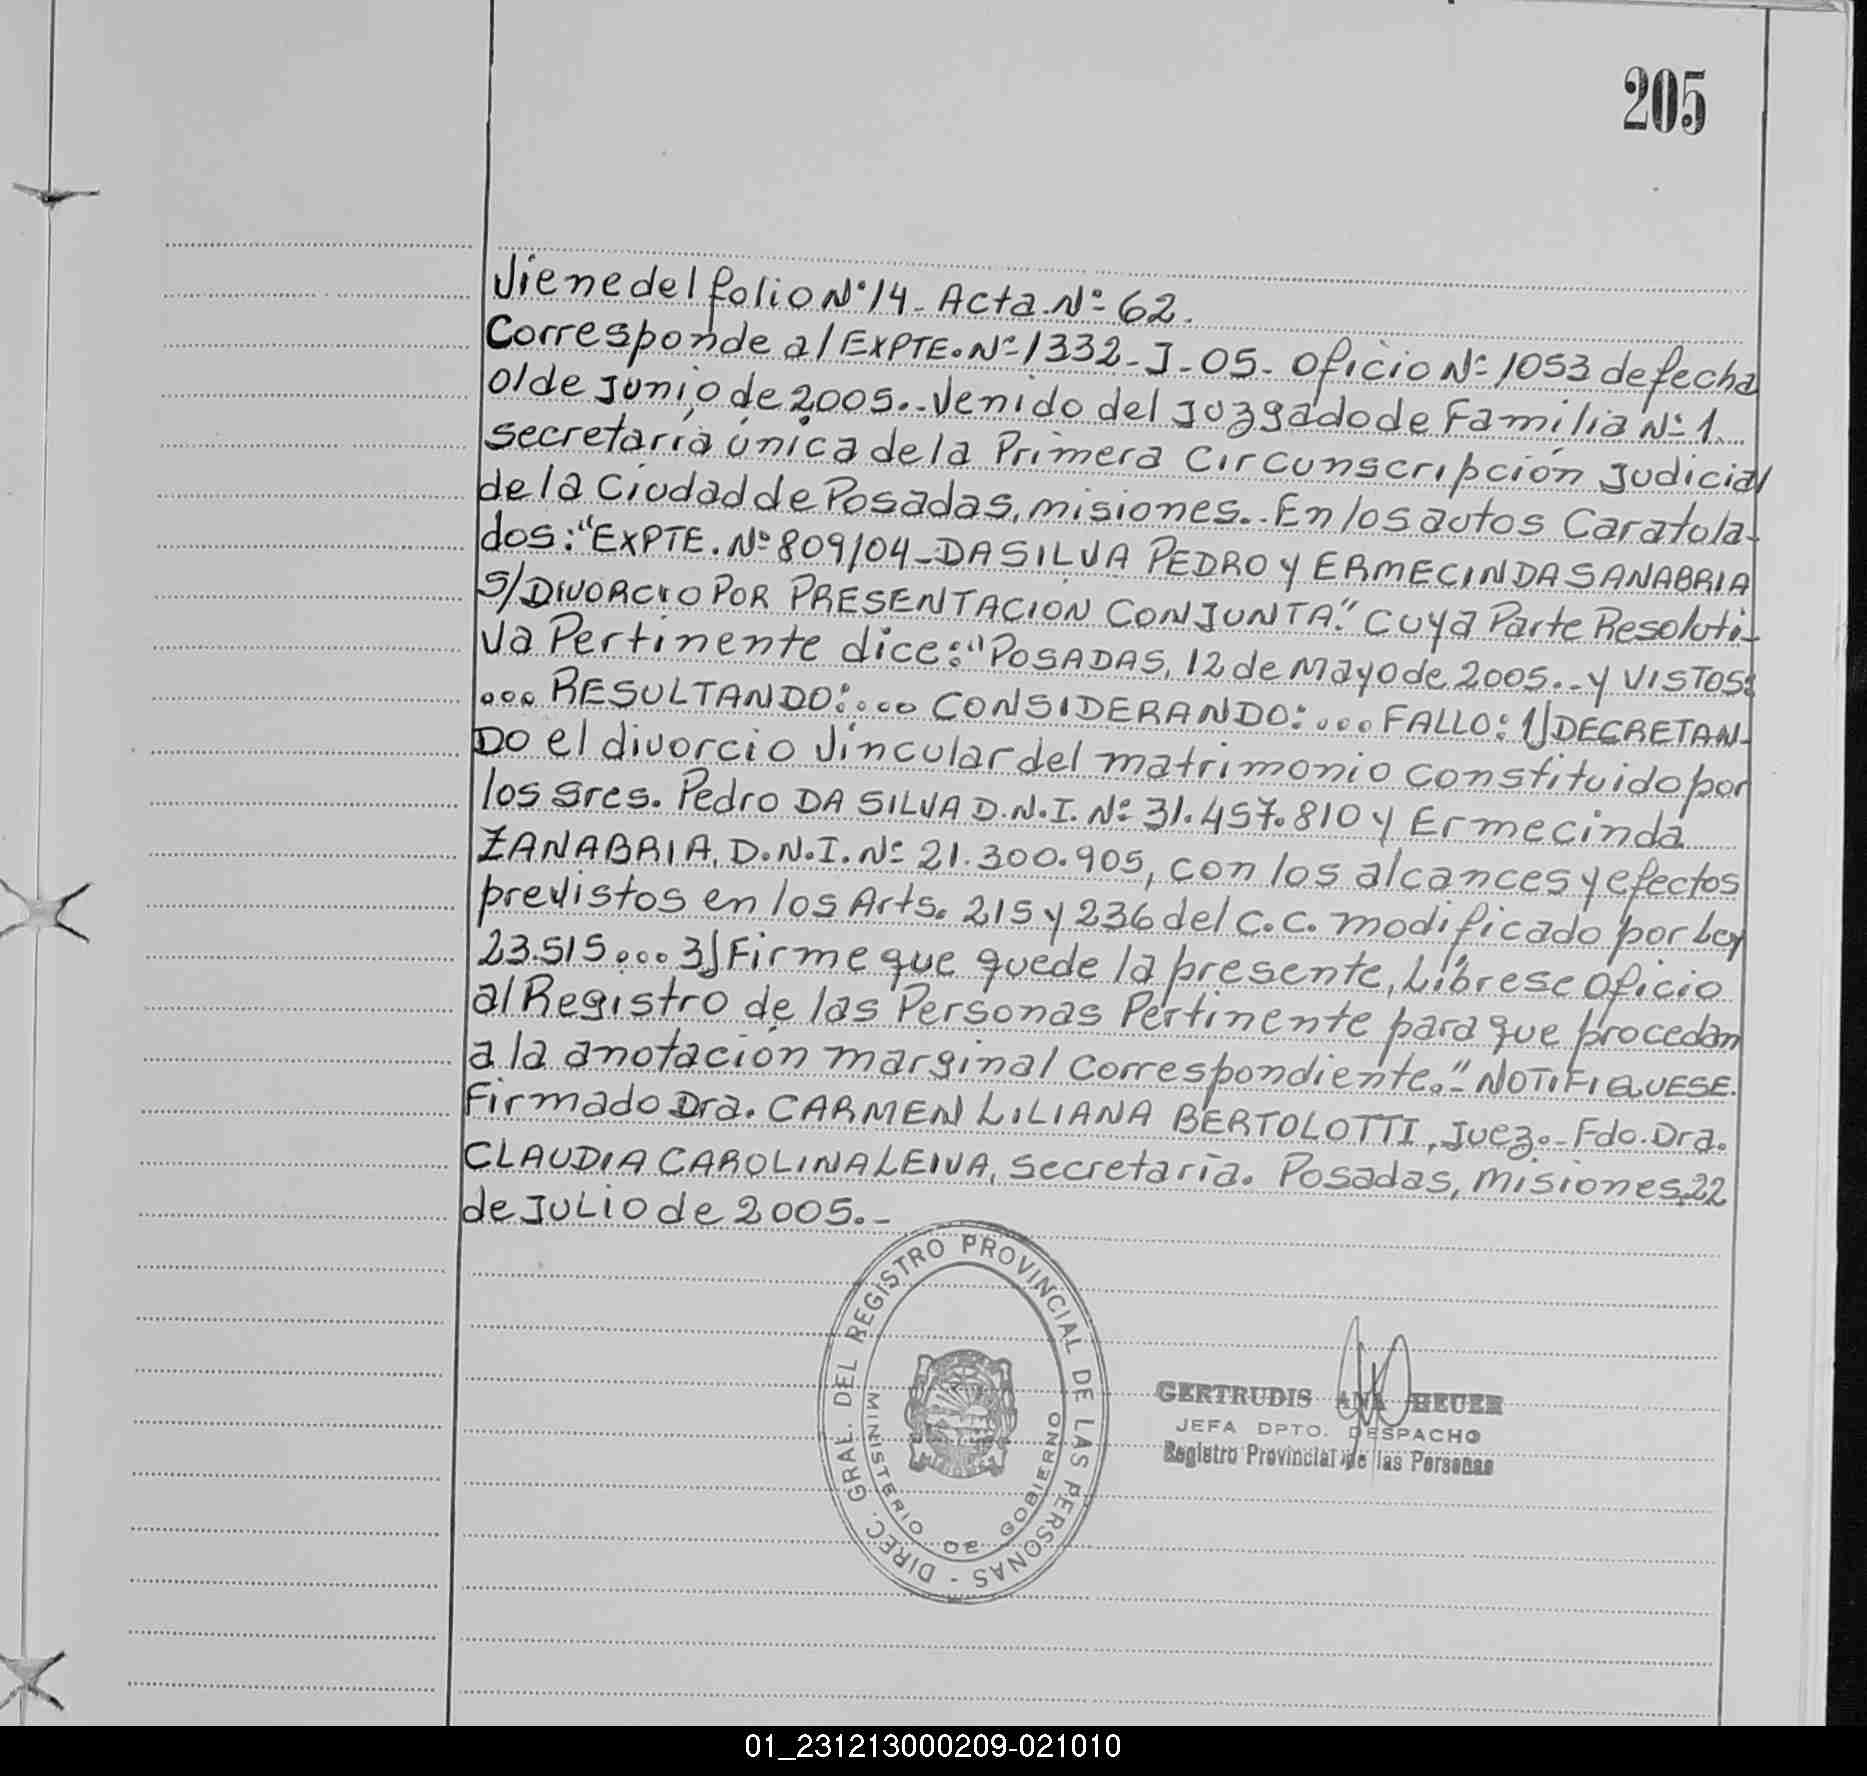 205
Viene del folio Nº 14. Acta Nº 62.
Corresponde al EXPTE. Nº 1332-J-05- oficio Nº 1053 de fecha
01 de Junio de 2005.-Venido del Juzgado de Familia Nº 1.
secretaría única de la Primera Circunscripción Judicial
de la Ciudad de Posadas, misiones.-En los autos Caratula-
dos: "EXPTE. Nº 809/04-DA SILVA PEDRO y ERMECINDA SANABRIA
S/DIVORCIO POR PRESENTACION CONJUNTA." cuya Parte Resoluti-
va Pertinente dice: "POSADAS, 12 de Mayo de 2005.-y VISTOS:
... RESULTANDO:.... CONSIDERANDO:... FALLO: 1) DECRETAN-
DO el divorcio vincular del matrimonio constituido por
los sres. Pedro DA SILVA D.N.I. Nº 31.457.810 y Ermecinda
ZANABRIA, D.N.I. Nº 21.300.905, con los alcances y efectos
previstos en los Arts. 215 y 236 del C.C. modificado por Ley
23.515.... 3) Firme que quede la presente, Líbrese oficio
al Registro de las Personas Pertinente para que procedan
a la anotación marginal correspondiente."-NOTIFIQUESE.
Firmado Dra. CARMEN LILIANA BERTOLOTTI, Juez.- Fdo. Dra.
CLAUDIA CAROLINA LEIVA, secretaria. Posadas, Misiones, 22
de JULIO de 2005.-
DIREC. GRAL. DEL REGISTRO PROVINCIAL DE LAS PERSONAS -
MINISTERIO DE GOBIERNO
GERTRUDIS ANA HEUER
JEFA DPTO. DESPACHO
Registro Provincial de las Personas
01_231213000209-021010